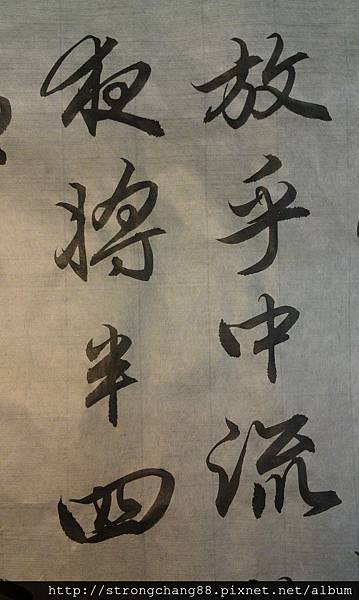 放乎中流
夜將半四
http://strongchang88.pixnet.net/album